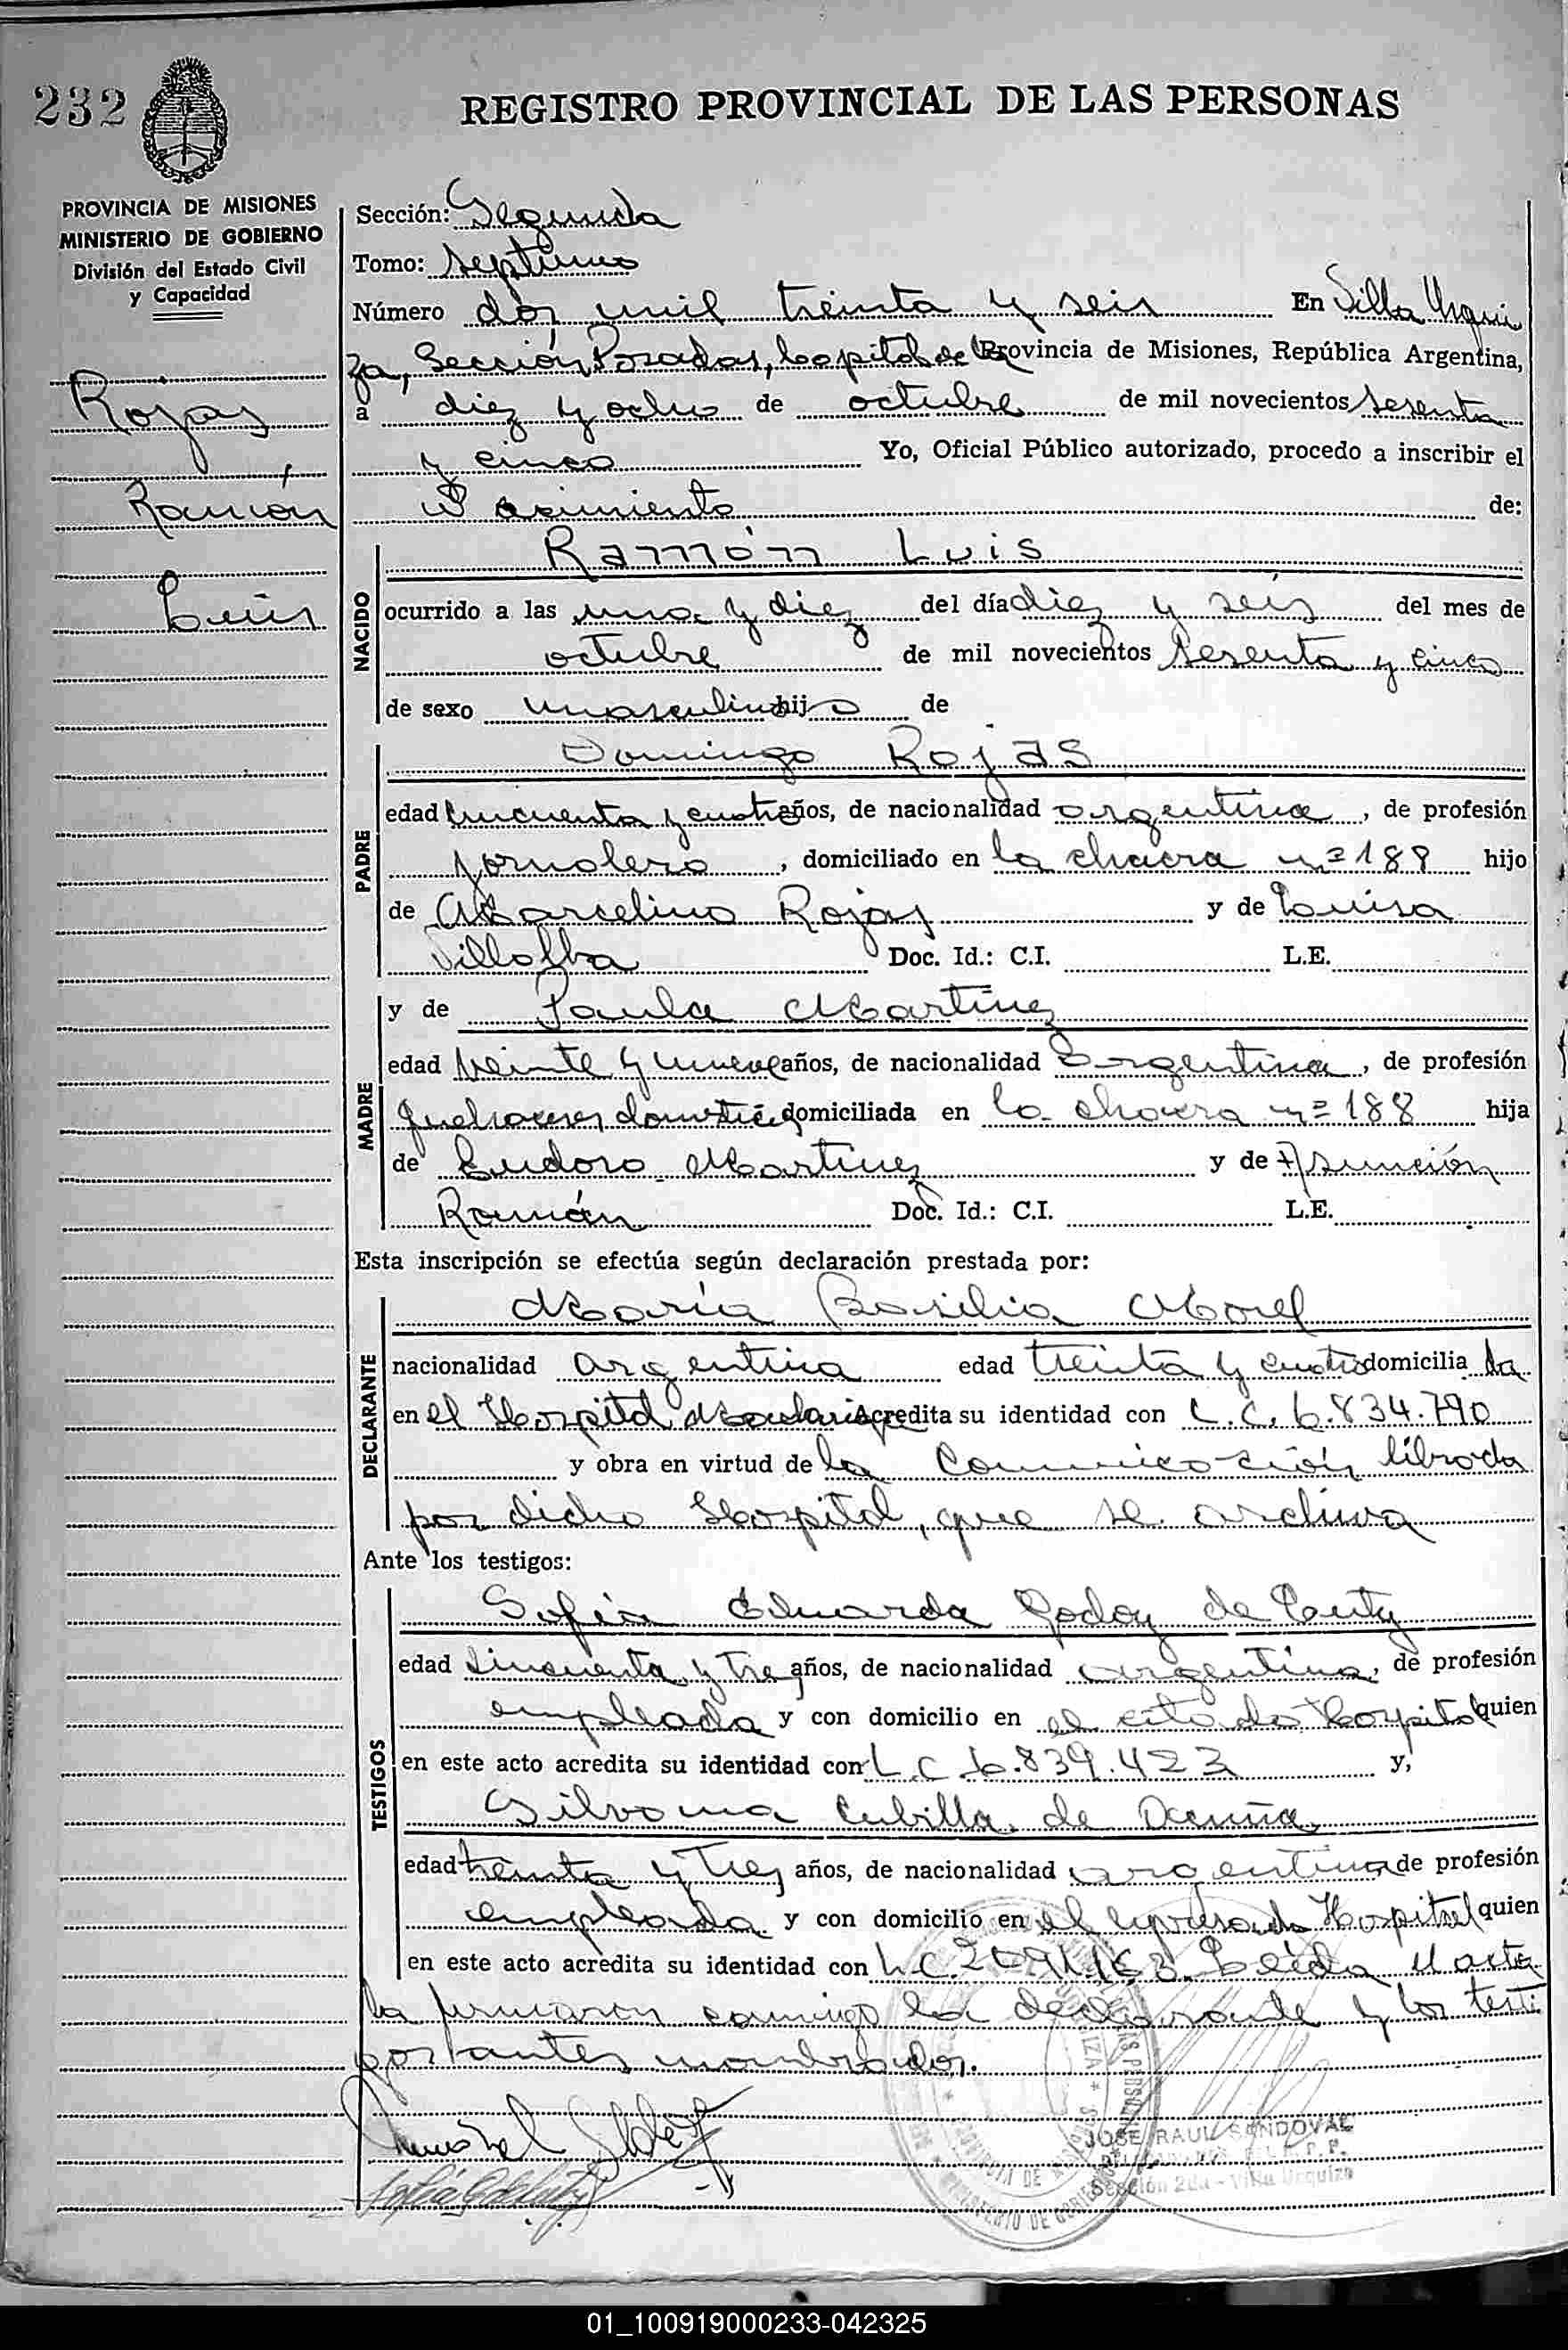 232
REGISTRO PROVINCIAL DE LAS PERSONAS
PROVINCIA DE MISIONES
MINISTERIO DE GOBIERNO
División del Estado Civil
y Capacidad
Rojas
Ramón
Luis
Sección: Segunda
Tomo: Septimo
Número dos mil treinta y seis En Villa Urqui
za, Sección Posadas, Capital de la Provincia de Misiones, República Argentina,
a diez y ocho de octubre de mil novecientos sesenta
y cinco Yo, Oficial Público autorizado, procedo a inscribir el
Nacimiento de:
NACIDO
Ramón Luis
ocurrido a las una y diez del día diez y seis del mes de
octubre de mil novecientos sesenta y cinco
de sexo masculino hijo de
PADRE
Domingo Rojas
edad cincuenta y cuatro años, de nacionalidad argentina, de profesión
jornalero, domiciliado en la chacra nº 188 hijo
de Marcelino Rojas y de Luisa
Villalba Doc. Id.: C.I. L.E.
MADRE
y de Paula Martínez
edad veinte y nueve años, de nacionalidad argentina, de profesión
quehaceres domésticos domiciliada en la chacra nº 188 hija
de Eudoro Martínez y de Asunción
Román Doc. Id.: C.I. L.E.
Esta inscripción se efectúa según declaración prestada por:
DECLARANTE
María Basilia Morel
nacionalidad argentina edad treinta y cuatro domicilia da
en el Hospital Acredita su identidad con L.C. 6.834.790
y obra en virtud de la Comunicación librada
por dicho Hospital, que se archiva
Ante los testigos:
TESTIGOS
Sofía Eduarda Godoy de
edad cincuenta y tres años, de nacionalidad argentina, de profesión
empleada y con domicilio en el citado Hospital quien
en este acto acredita su identidad con L.C 6.839.423 y,
Silvana Cubilla de Acuña
edad treinta y tres años, de nacionalidad argentina de profesión
empleada y con domicilio en el expresado Hospital quien
en este acto acredita su identidad con L.C. Leída el acta
la firmaron conmigo la declarante y los testi
portantes nombrados.
JOSE RAUL SANDOVAL
Sección 2da - Villa Urquiza
01_100919000233-042325